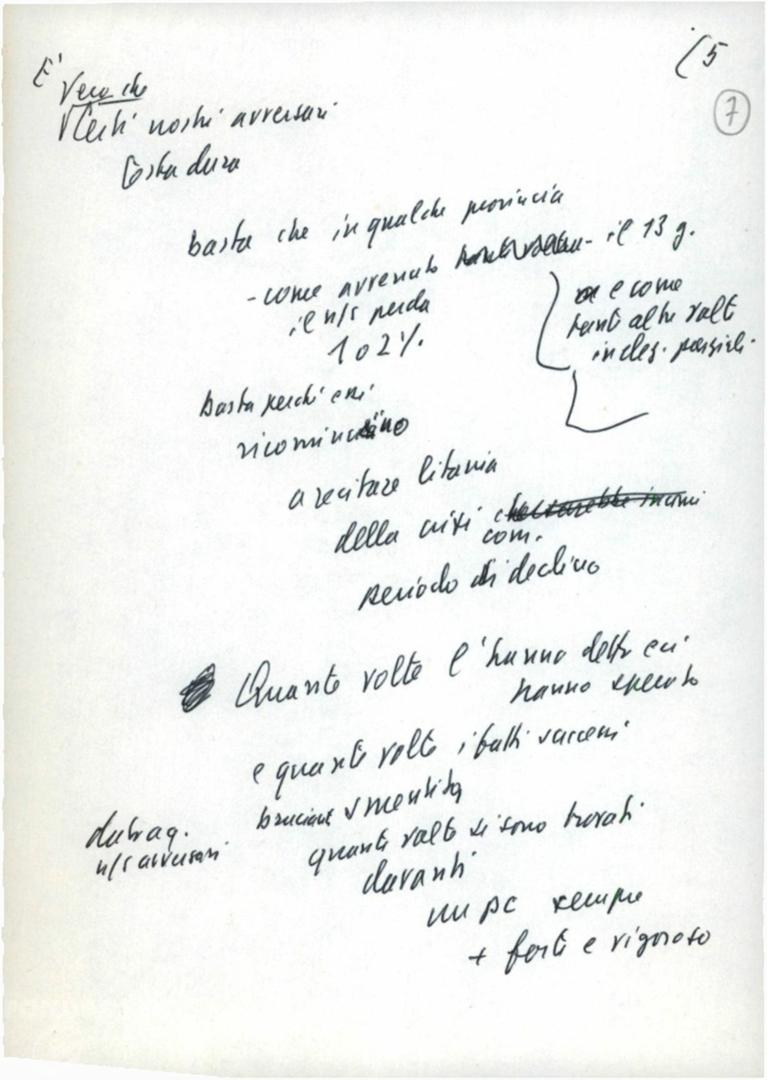 (5
7
E'
vero che
Certi nostri avversari
testa dura
basta che in qualche provincia
- come avvenuto - il 13 g.
il n/s perda
1 o 2%.
e come
tanti altre volte
in elez. parziali.
basta perché essi
ricomincino
a recitare litania
della crisi
com.
periodo di declino
Quante volte l'hanno detto e ci
hanno sperato
e quante volte i fatti
bruciante smentita
quante volte si sono trovati
davanti
un pc sempre
+ forte e vigoroso
n/s avversari